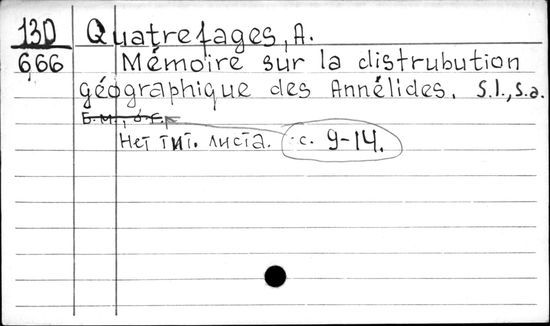 130
666
Quatrefages, A.
Mémoire sur la distrubution
géographique des Annélides. S.l., s.a.
Б.м., б.г.
Нет тит. листа. с. 9-14.